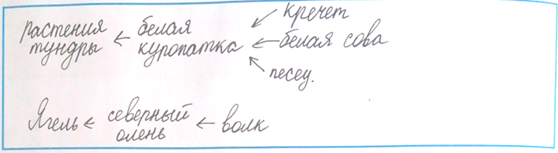 кречет
растения ← белая
тундры куропатка ← белая сова
песец.
Ягель ← северный
олень ← волк